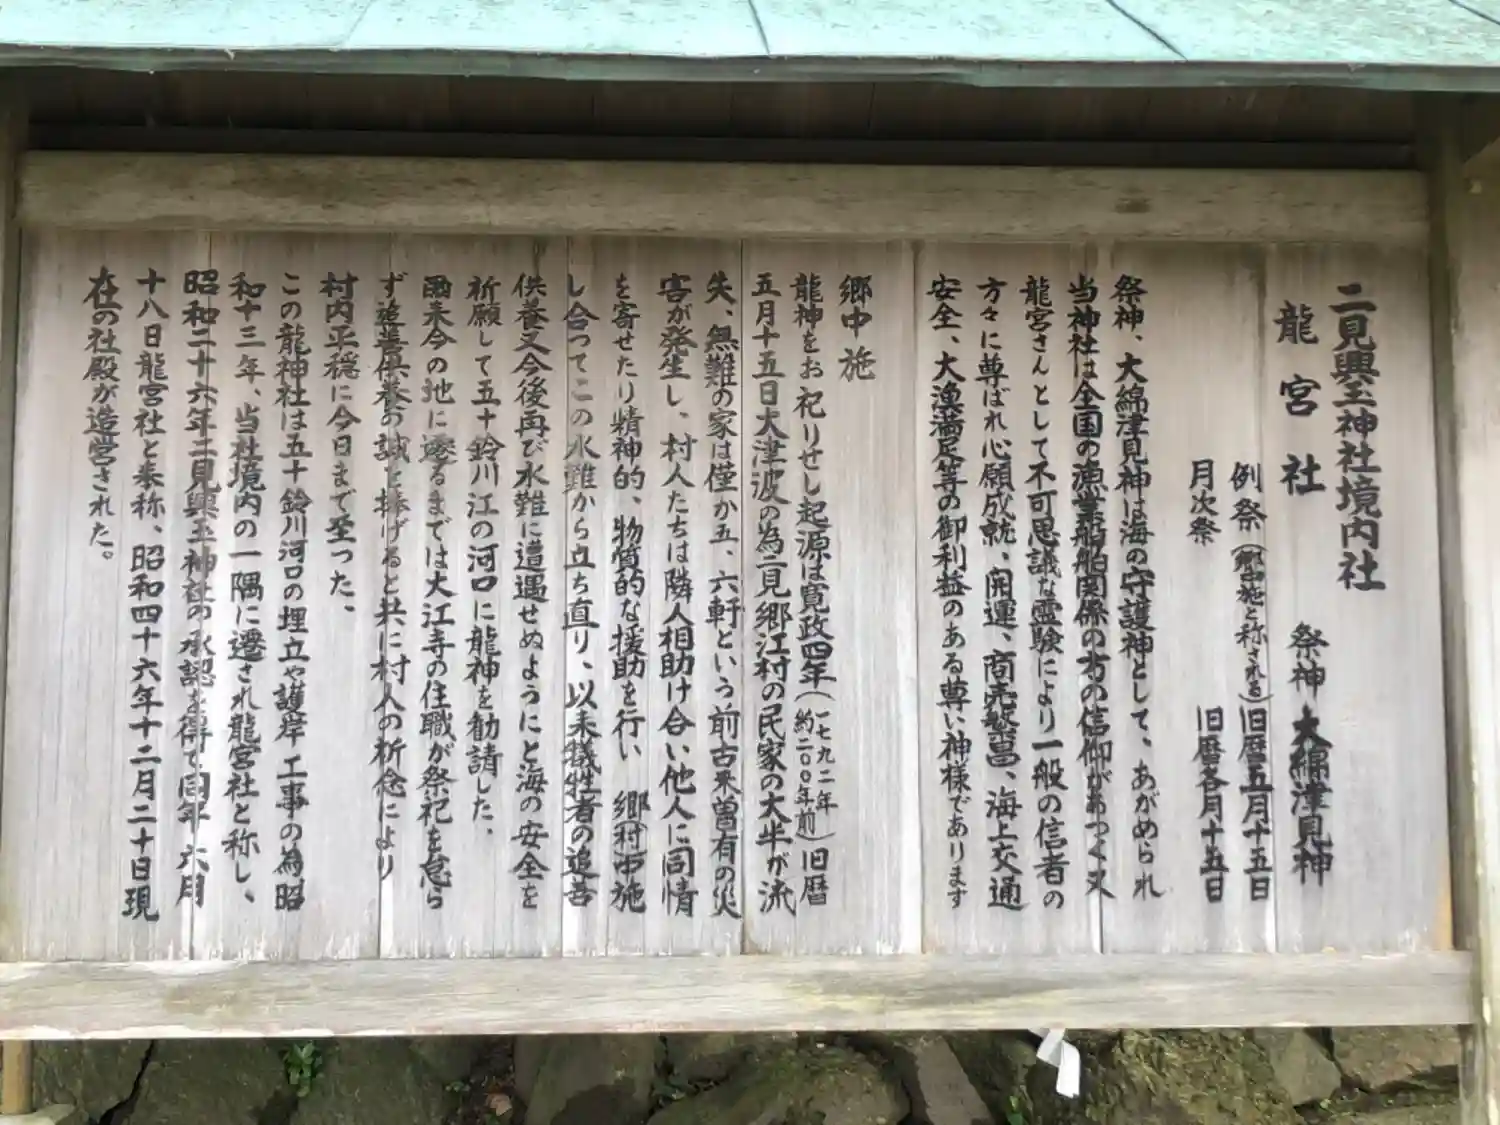 二見興玉神社境内社
龍宮社 祭神 大綿津見神
例祭(郷中施と称される)旧暦五月十五日
月次祭 旧暦各月十五日
祭神、大綿津見神は海の守護神として、あがめられ
当神社は全国の漁業船舶関係の方の信仰があつく又
龍宮さんとして不可思議な霊験により一般の信者の
方々に尊ばれ心願成就、開運、商売繁昌、海上交通
安全、大漁満足等の御利益のある尊い神様であります
郷中施
龍神をお祀りせし起源は寛政四年(一七九二年 約二〇〇年前)旧暦
五月十五日大津波の為二見郷江村の民家の大半が流
失、無難の家は僅か五、六軒という前古未曽有の災
害が発生し、村人たちは隣人相助け合い他人に同情
を寄せたり精神的、物質的な援助を行い 郷(村)中施
し合つてこの水難から立ち直り、以来犠牲者の追善
供養又今後再び水難に遭遇せぬようにと海の安全を
祈願して五十鈴川江の河口に龍神を勧請した、
爾来今の地に遷るまでは大江寺の住職が祭祀を怠ら
ず追善供養の誠を捧げると共に村人の祈念により
村内平穏に今日まで至った、
この龍神社は五十鈴川河口の埋立や護岸工事の為昭
和十三年、当社境内の一隅に遷され龍宮社と称し、
昭和二十六年二見興玉神社の承認を得て同年六月
十八日龍宮社と奉称、昭和四十六年十二月二十日現
在の社殿が造営された。